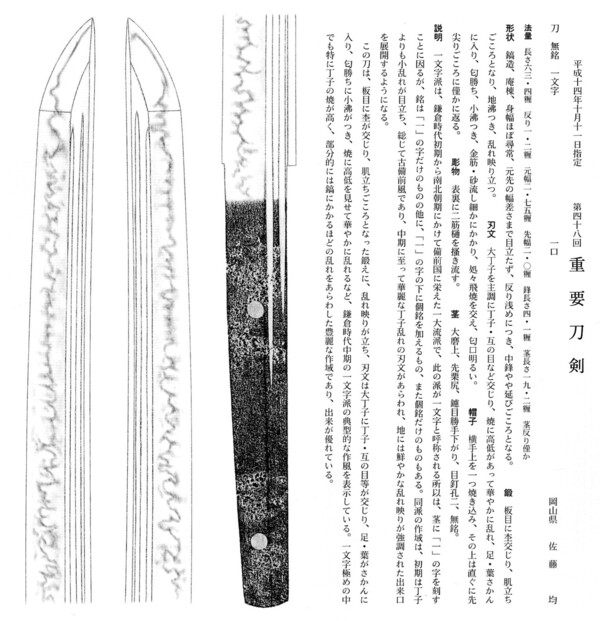 平成十四年十月十一日指定　第四十八回　重要刀剣
刀　無銘　一文字　一口　岡山県　佐藤　均
法量　長さ六三・四糎　反り一・二糎　元幅二・七五糎　先幅二・〇糎　鋒長さ四・一糎　茎長さ一九・二糎　茎反り僅か
形状　鎬造、庵棟、身幅ほぼ尋常、元先の幅差さまで目立たず、反り浅めにつき、中鋒やや延びごころとなる。　鍛　板目に杢交じり、肌立ち
ごころとなり、地沸つき、乱れ映り立つ。　刃文　大丁子を主調に丁子・互の目など交じり、焼に高低があって華やかに乱れ、足・葉さかん
に入り、匂勝ち、小沸つき、金筋・砂流し細かにかかり、処々飛焼を交え、匂口明るい。　帽子　横手上を一つ焼き込み、その上は直ぐに先
尖りごころに僅かに返る。　彫物　表裏に二筋樋を掻き流す。　茎　大磨上、先栗尻、鑢目勝手下がり、目釘孔二、無銘。
説明　一文字派は、鎌倉時代初期から南北朝期にかけて備前国に栄えた一大流派で、此の派が一文字と呼称される所以は、茎に「一」の字を刻す
ことに因るが、銘は「一」の字だけのものの他に、「一」の字の下に個銘を加えるもの、また個銘だけのものもある。同派の作域は、初期は丁子
よりも小乱れが目立ち、総じて古備前風であり、中期に至って華麗な丁子乱れの刃文があらわれ、地には鮮やかな乱れ映りが強調された出来口
を展開するようになる。
この刀は、板目に杢が交じり、肌立ちごころとなった鍛えに、乱れ映りが立ち、刃文は大丁子に丁子・互の目等が交じり、足・葉がさかんに
入り、匂勝ちに小沸がつき、焼に高低を見せて華やかに乱れるなど、鎌倉時代中期の一文字派の典型的な作風を表示している。一文字極めの中
でも特に丁子の焼が高く、部分的には鎬にかかるほどの乱れをあらわした豊麗な作域であり、出来が優れている。